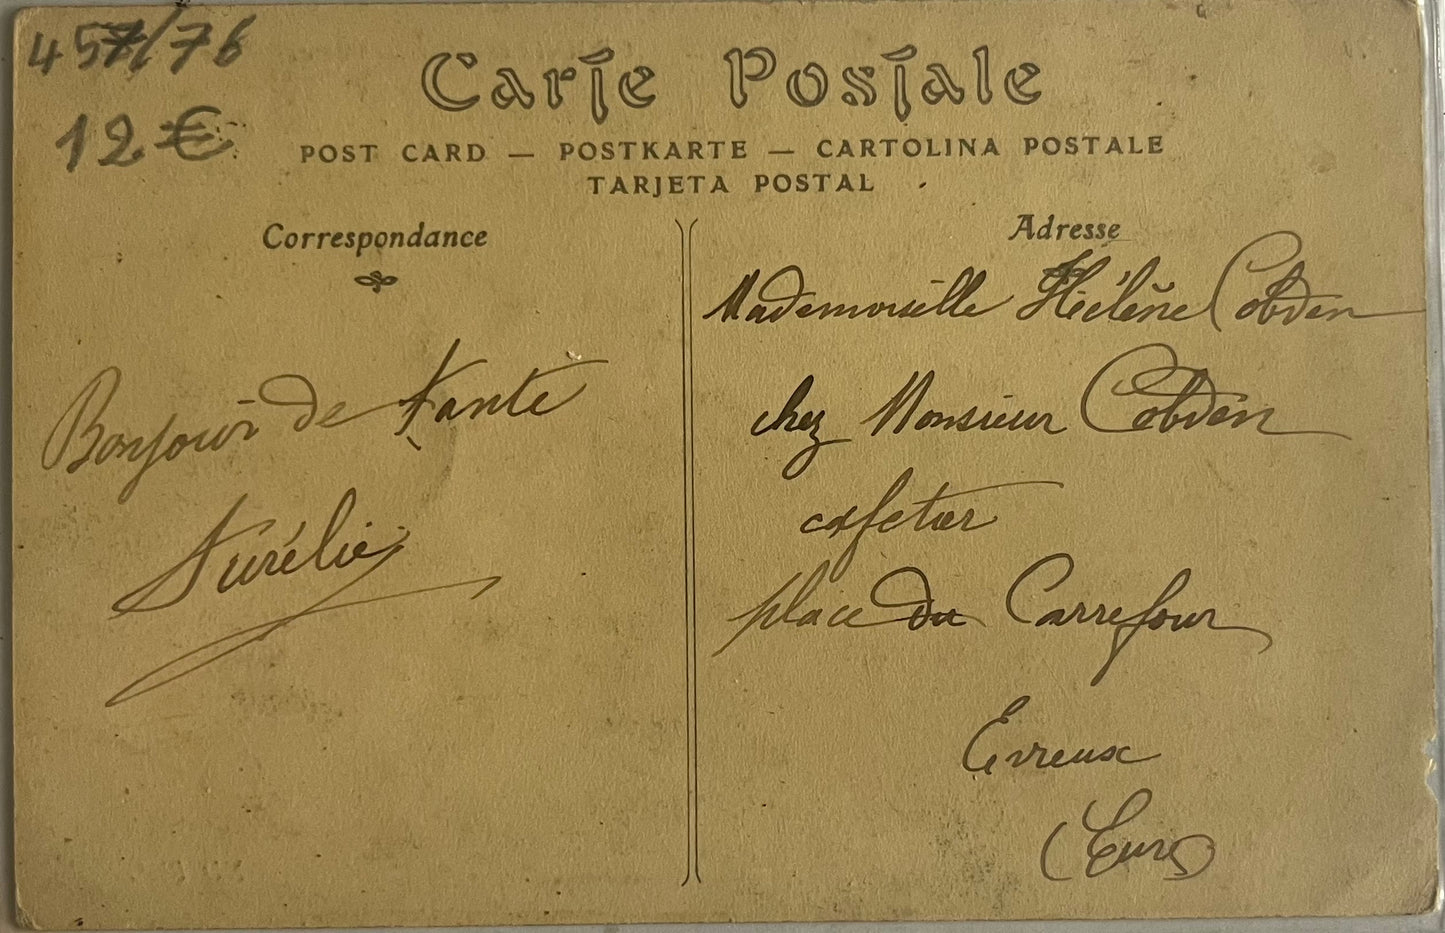 457/76
12 €
Carte Postale
POST CARD — POSTKARTE — CARTOLINA POSTALE
TARJETA POSTAL
Correspondance
Bonjour de
Aurélie
Adresse
Mademoiselle Hélène Cobden
chez Monsieur Cobden
cafetier
place du Carrefour
Evreux
(Eure)